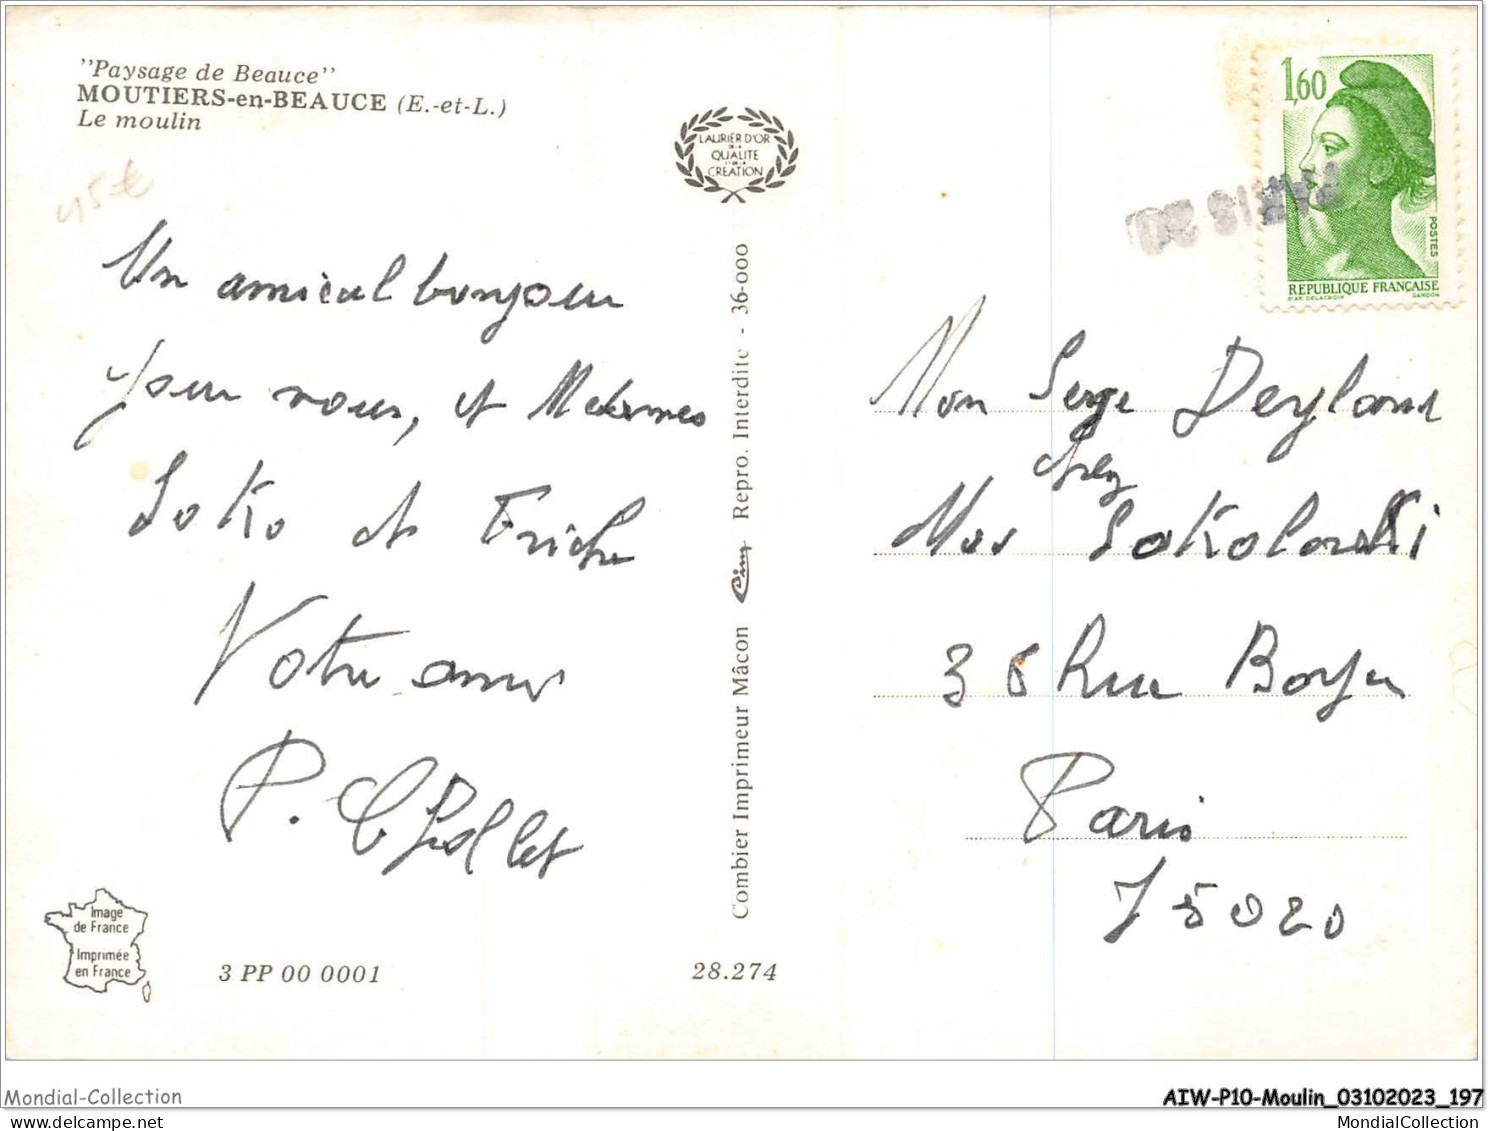 "Paysage de Beauce"
MOUTIERS-en-BEAUCE (E.-et-L.)
Le moulin
45€
Un amical bonjour
pour vous, et Mesdames
Soko et Friche
Votre ami
P.
LAURIER D'OR
DE LA
QUALITE
ET DE LA
CREATION
Combier Imprimeur Mâcon Cim Repro. Interdite - 36-000
1,60
POSTES
REPUBLIQUE FRANÇAISE
D'AP. DELACROIX GANDON
PARIS 20
Mon Serge
chez
Mme Sokolowski
36 Rue Boyer
Paris
75020
Image
de France
Imprimée
en France
3 PP 00 0001
28.274
Mondial-Collection
delcampe.net
AIW-P10-Moulin_03102023_197
MondialCollection